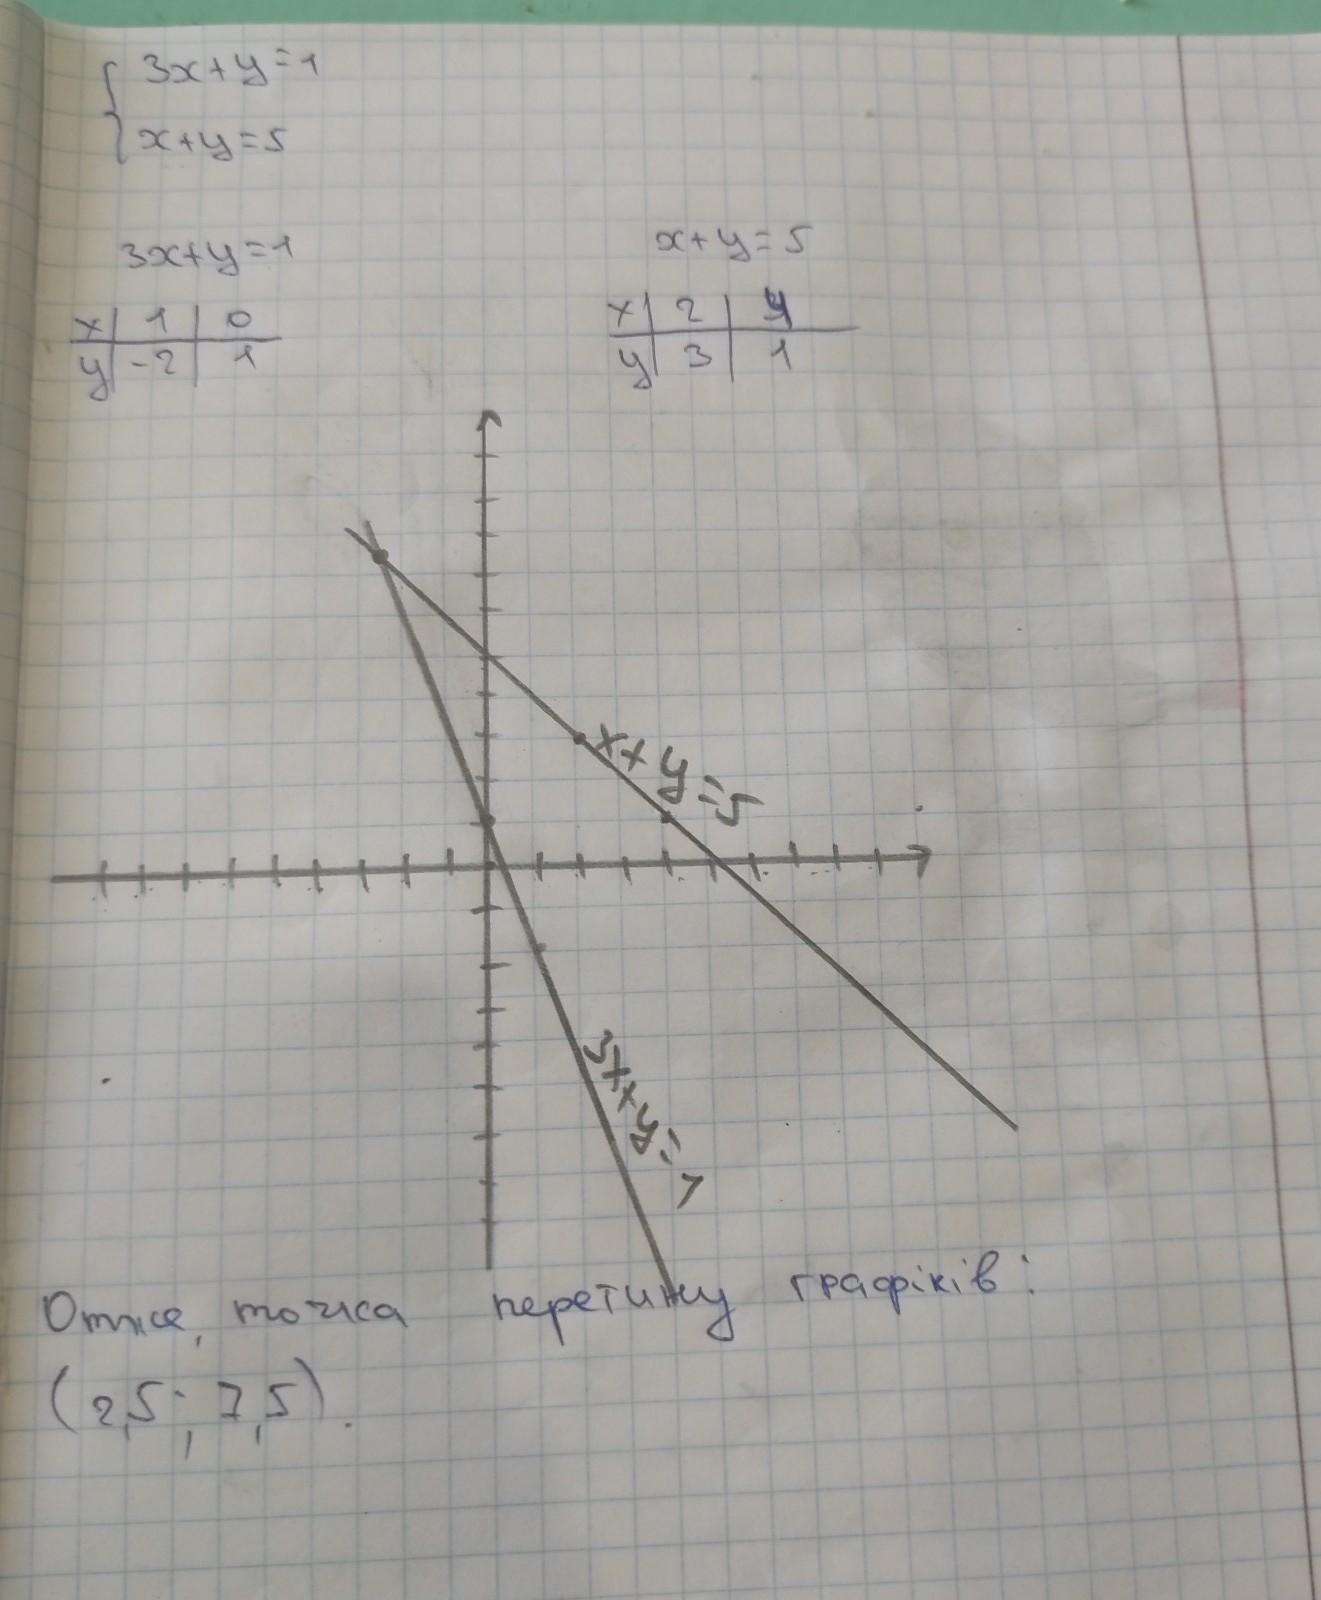 3x+y=1
x+y=5
3x+y=1
x 1 0
y -2 1
x+y=5
x 2 4
y 3 1
x+y=5
3x+y=1
Отже, точка перетину графіків:
(2,5; 7,5).